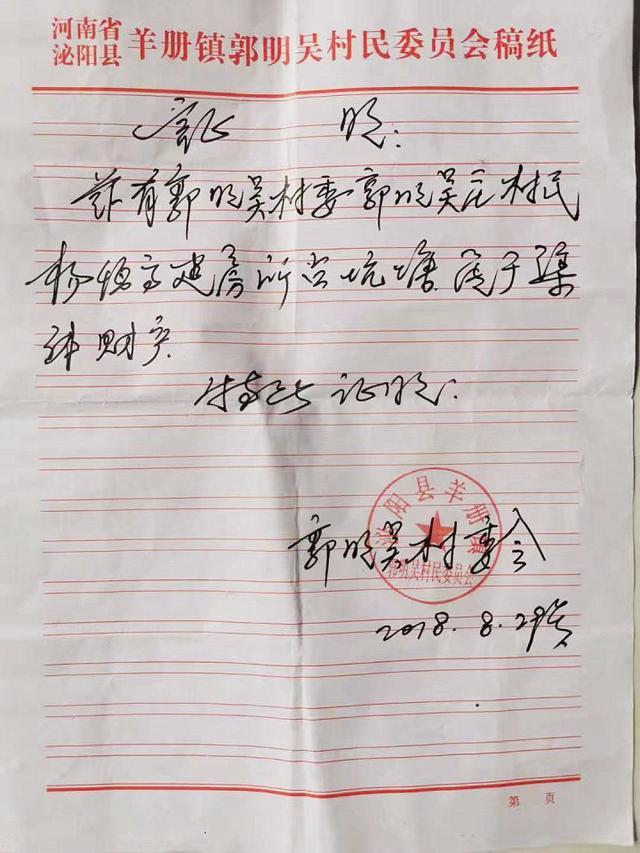 河南省
泌阳县
羊册镇郭明吴村民委员会稿纸
证 明:
兹有郭明吴村委郭明吴庄村民
杨德高建房所占坑塘属于集
体财产
特此证明:
泌阳县羊册镇
郭明吴村民委员会
郭明吴村委会
2018.8.29号
第 页